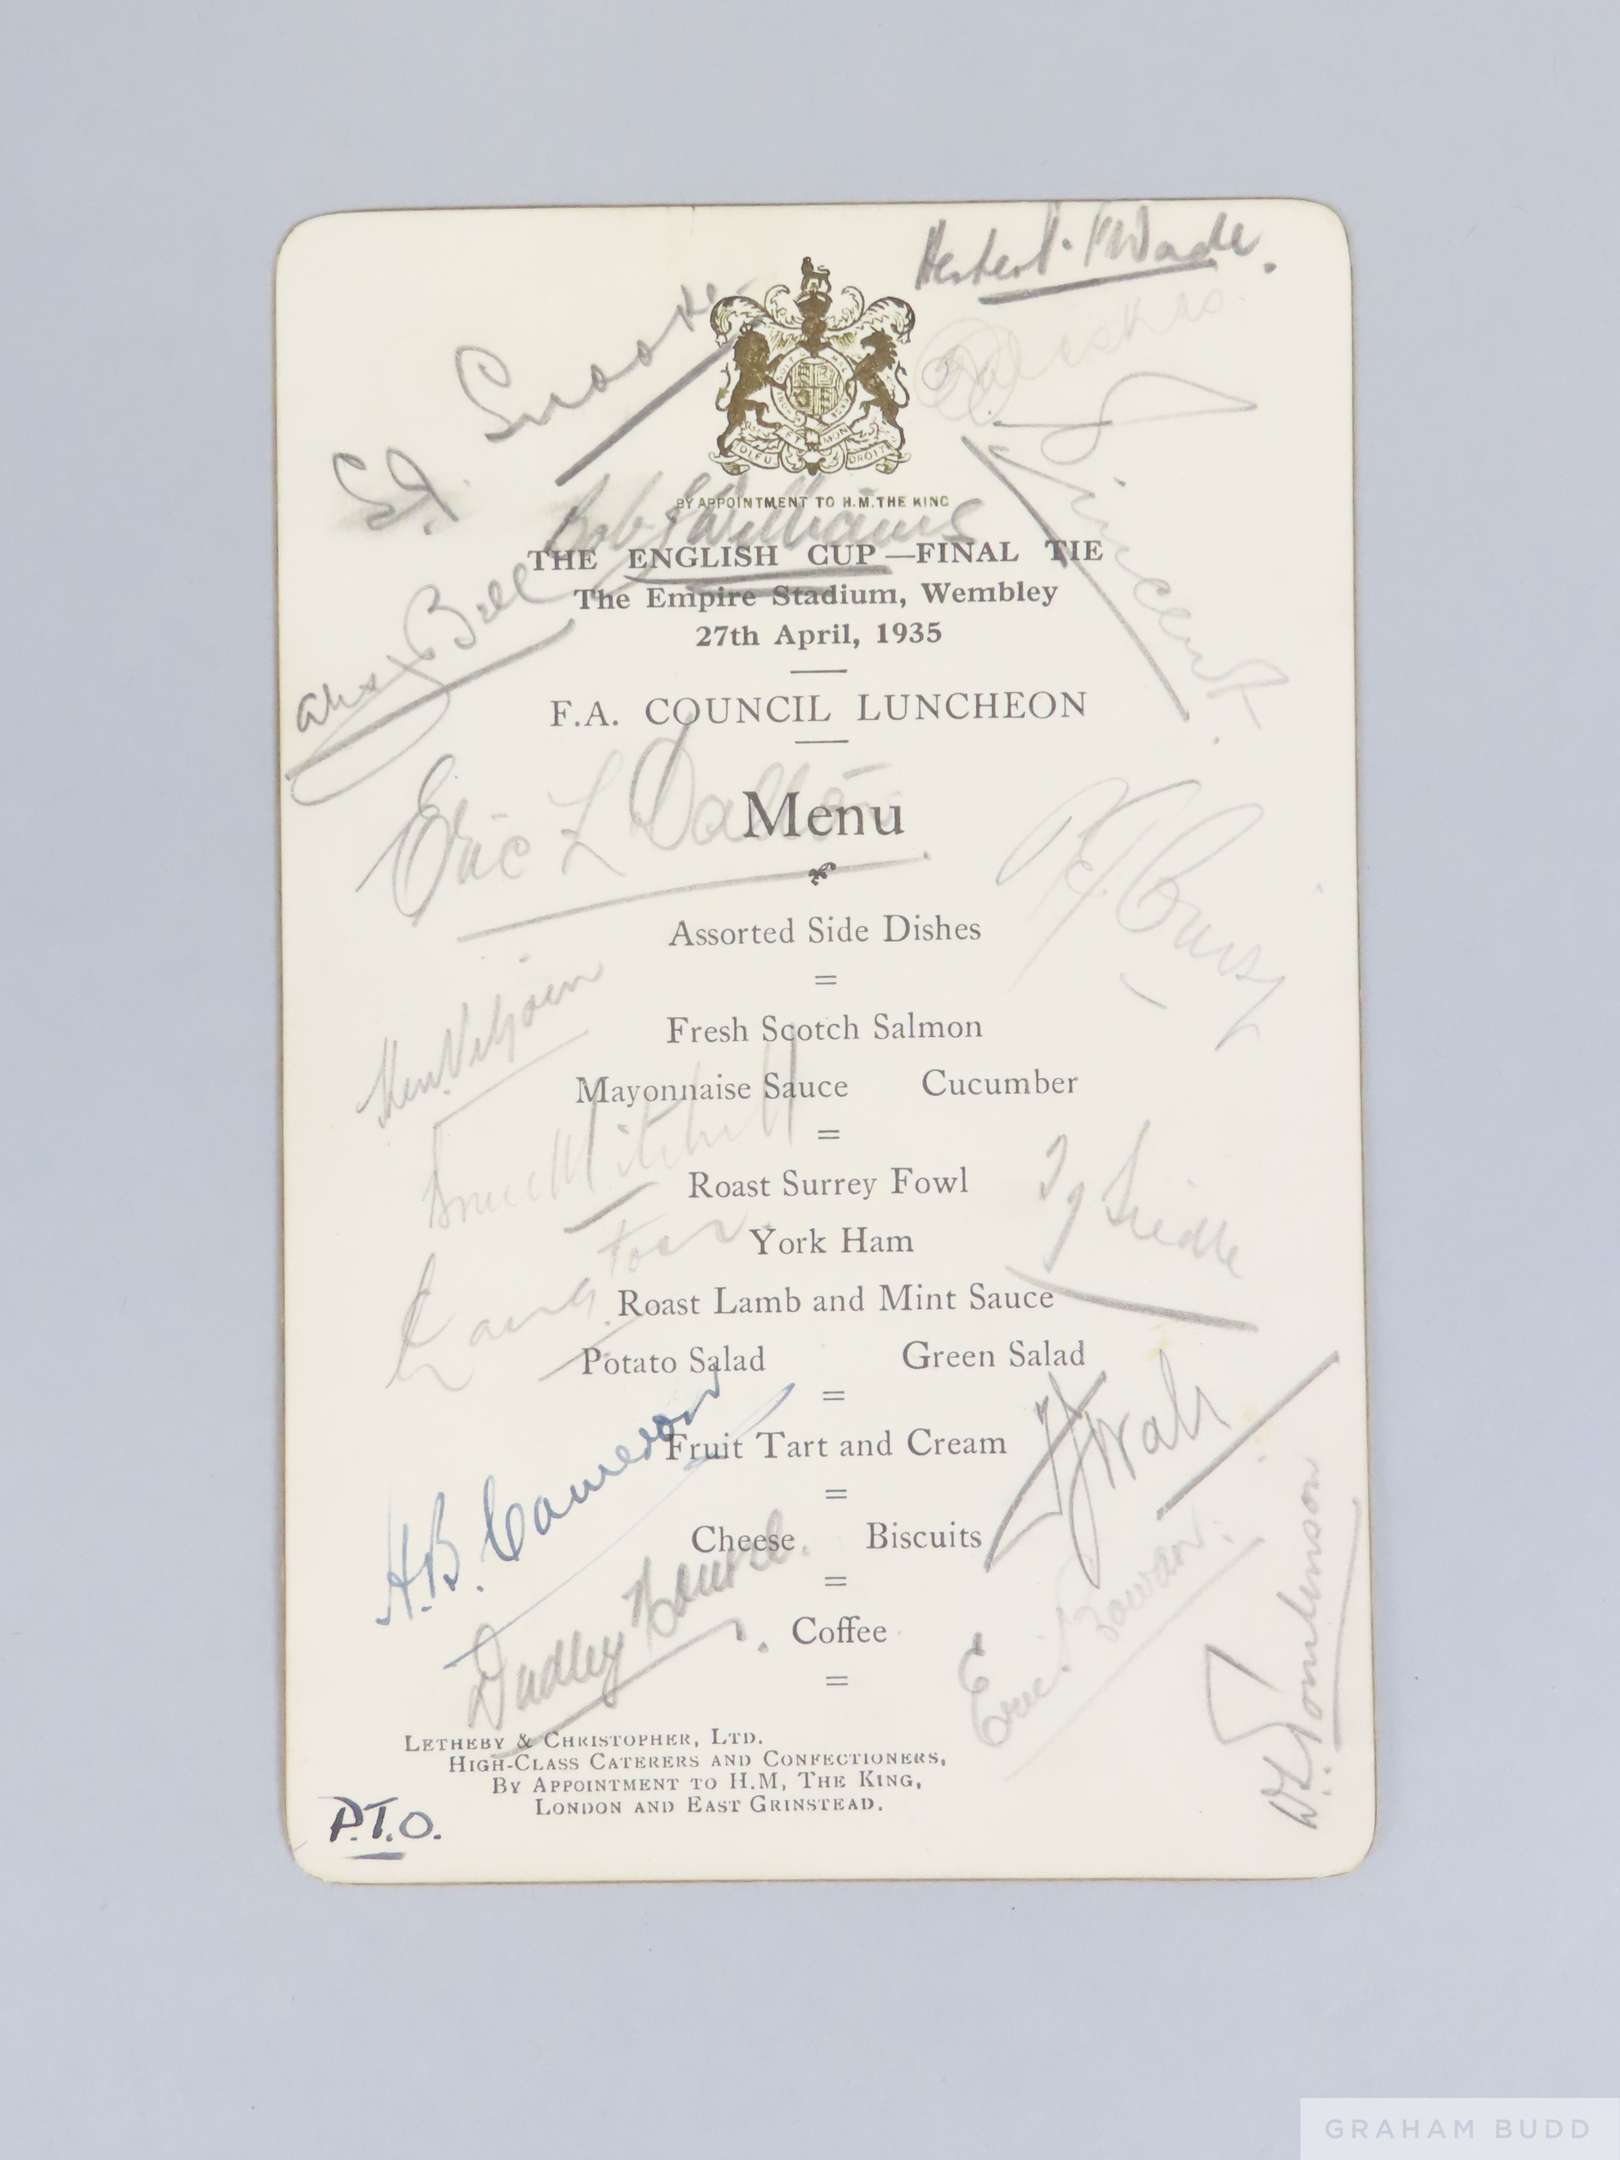 Herbert. F Wade.
S. I. Snooke.
BY APPOINTMENT TO H.M. THE KING
Bob J Williams
THE ENGLISH CUP—FINAL TIE
The Empire Stadium, Wembley
Alex Bell
27th April, 1935
Vincent.
F.A. COUNCIL LUNCHEON
Eric L Dalton.
Menu
R. J. Crisp
Assorted Side Dishes
=
Ken. Viljoen
Fresh Scotch Salmon
Mayonnaise Sauce Cucumber
=
Bruce Mitchell
Roast Surrey Fowl
I J Siedle
York Ham
Langton.
Roast Lamb and Mint Sauce
Potato Salad Green Salad
=
A.B. Cameron
Fruit Tart and Cream
=
Cheese Biscuits
=
Dudley Nourse.
Eric. Rowan.
D. Tomlinson
Coffee
=
LETHEBY & CHRISTOPHER, LTD.
HIGH-CLASS CATERERS AND CONFECTIONERS,
BY APPOINTMENT TO H.M, THE KING,
LONDON AND EAST GRINSTEAD.
P.T.O.
GRAHAM BUDD